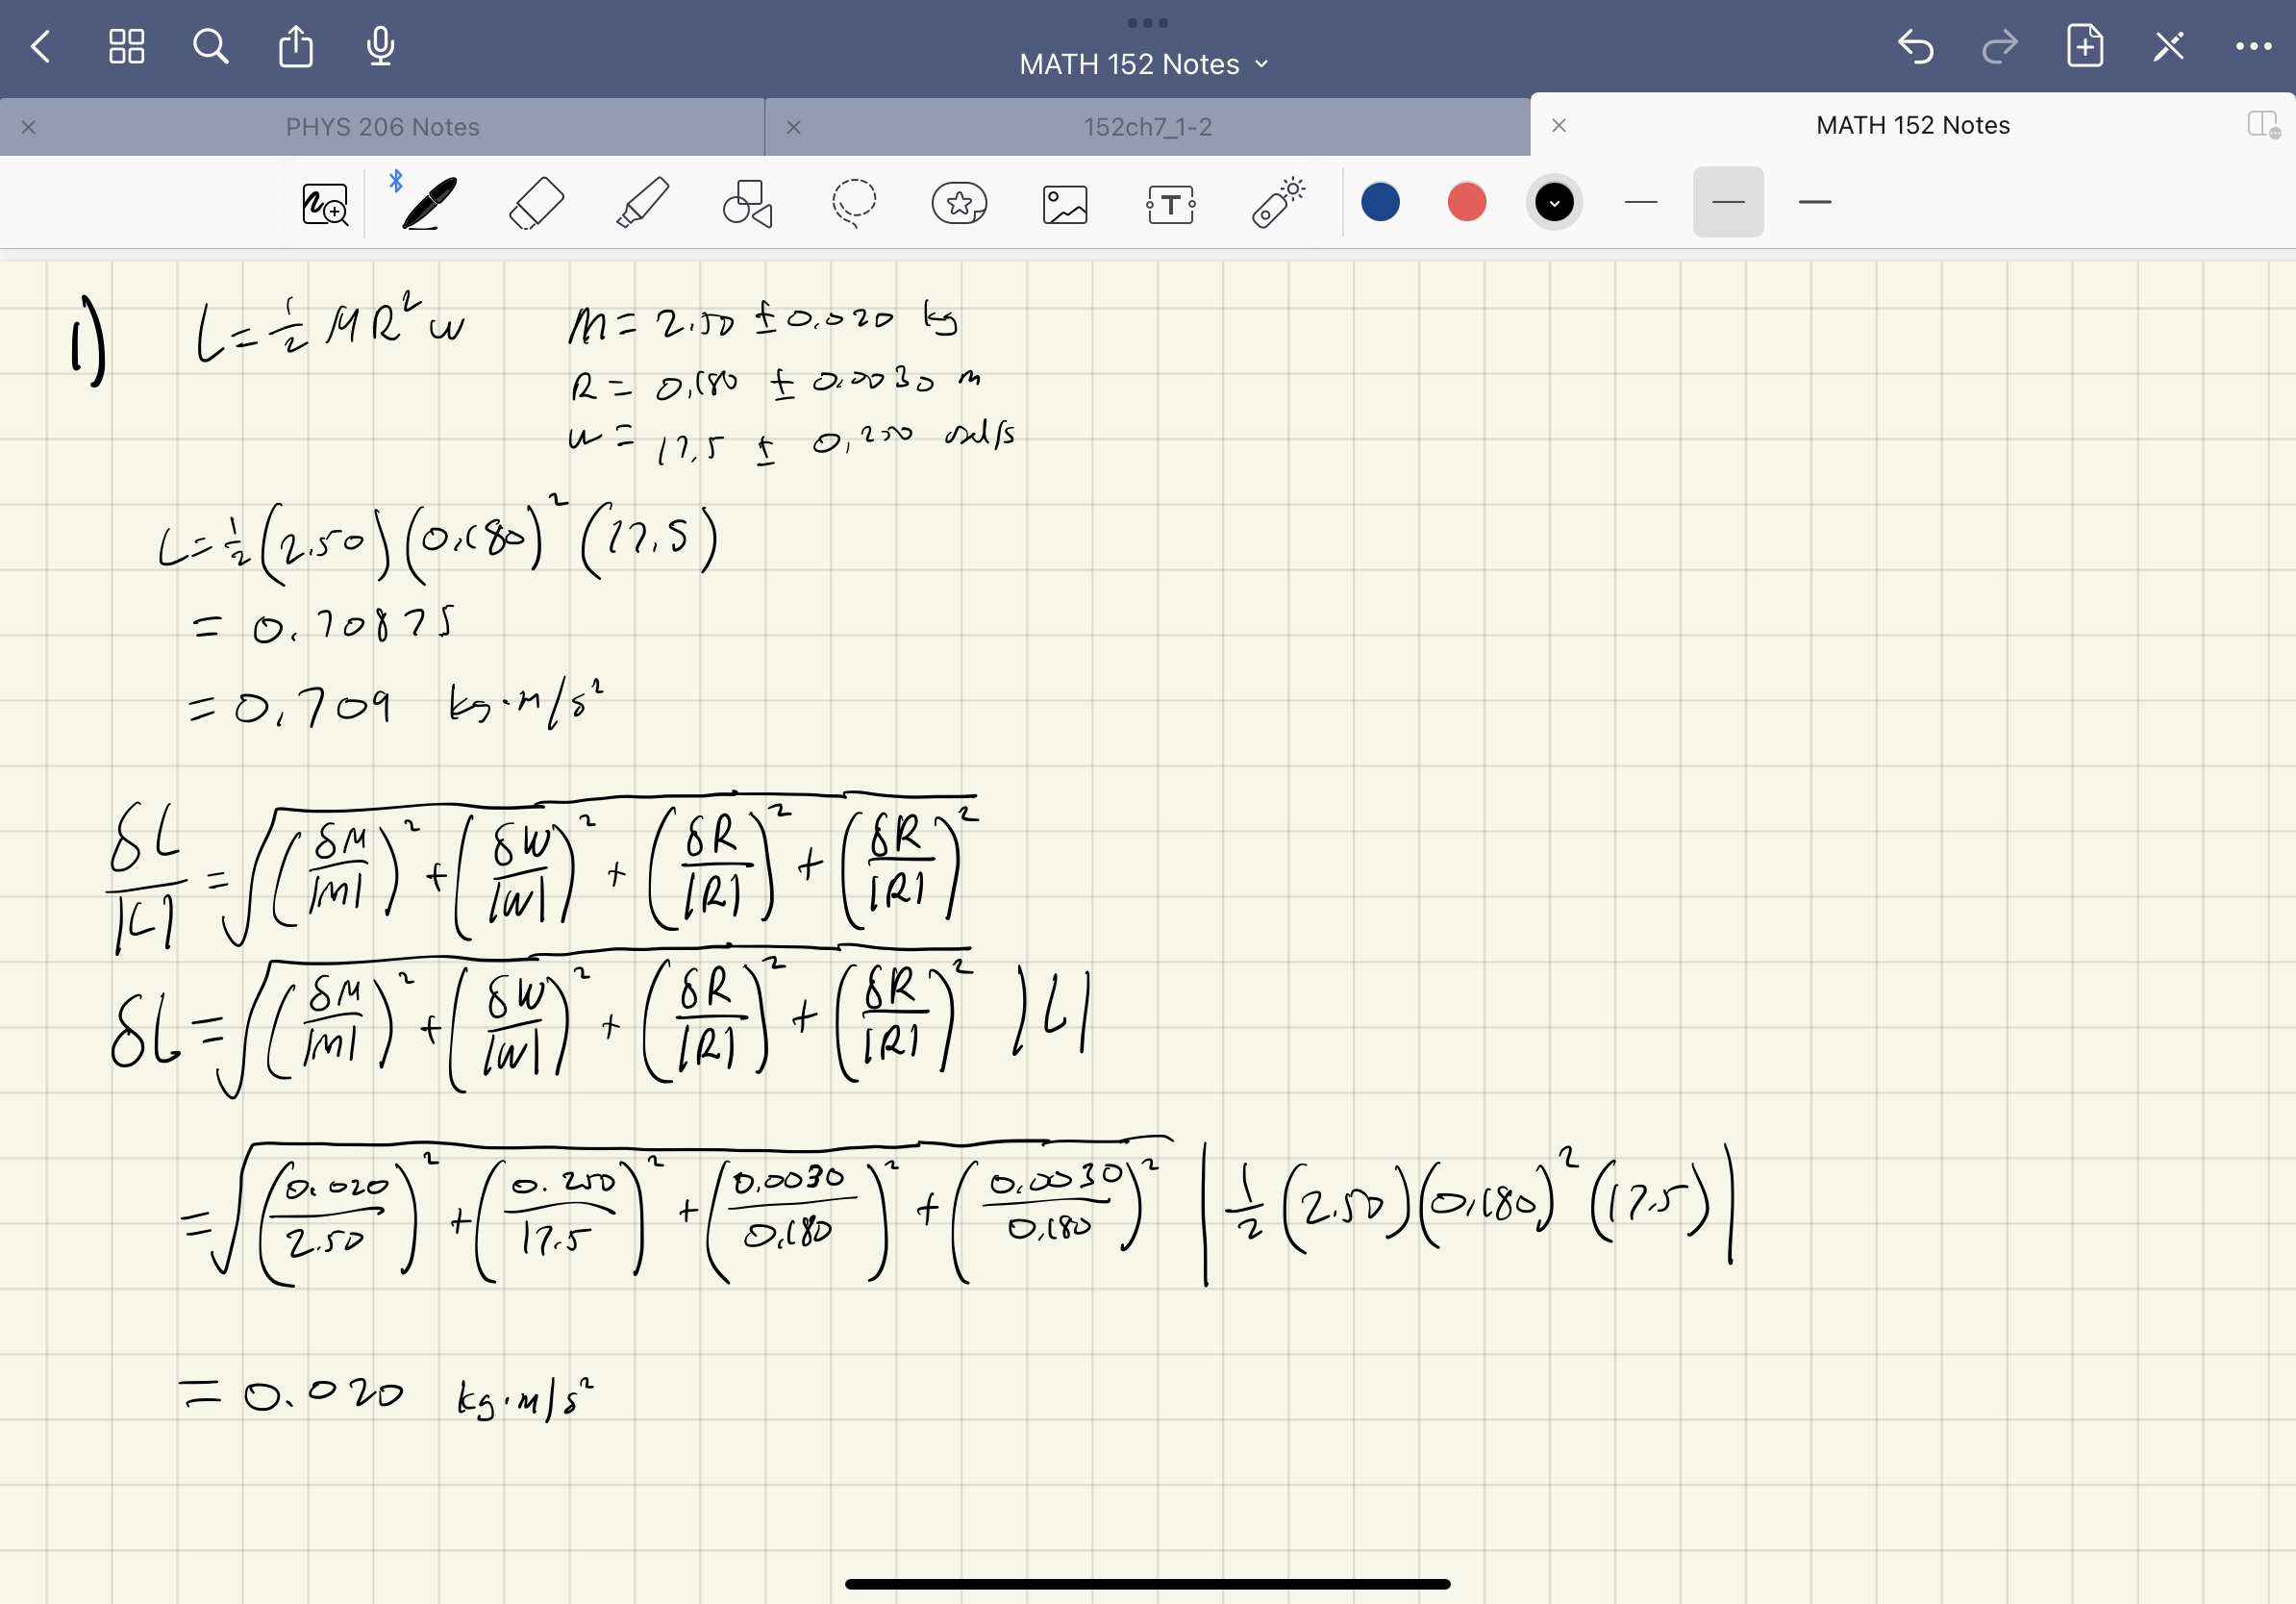 MATH 152 Notes
PHYS 206 Notes
152ch7_1-2
MATH 152 Notes
1) L = 1/2 MR² w
M = 2.50 ± 0.020 kg
R = 0.180 ± 0.0030 m
w = 17.5 ± 0.250 rad/s
L = 1/2 (2.50) (0.180)² (17.5)
= 0.70875
= 0.709 kg·m/s²
δL/|L| = √((δM/|M|)² + (δW/|W|)² + (δR/|R|)² + (δR/|R|)²)
δL = √((δM/|M|)² + (δW/|W|)² + (δR/|R|)² + (δR/|R|)²) |L|
= √((0.020/2.50)² + (0.250/17.5)² + (0.0030/0.180)² + (0.0030/0.180)²) |1/2 (2.50) (0.180)² (17.5)|
= 0.020 kg·m/s²